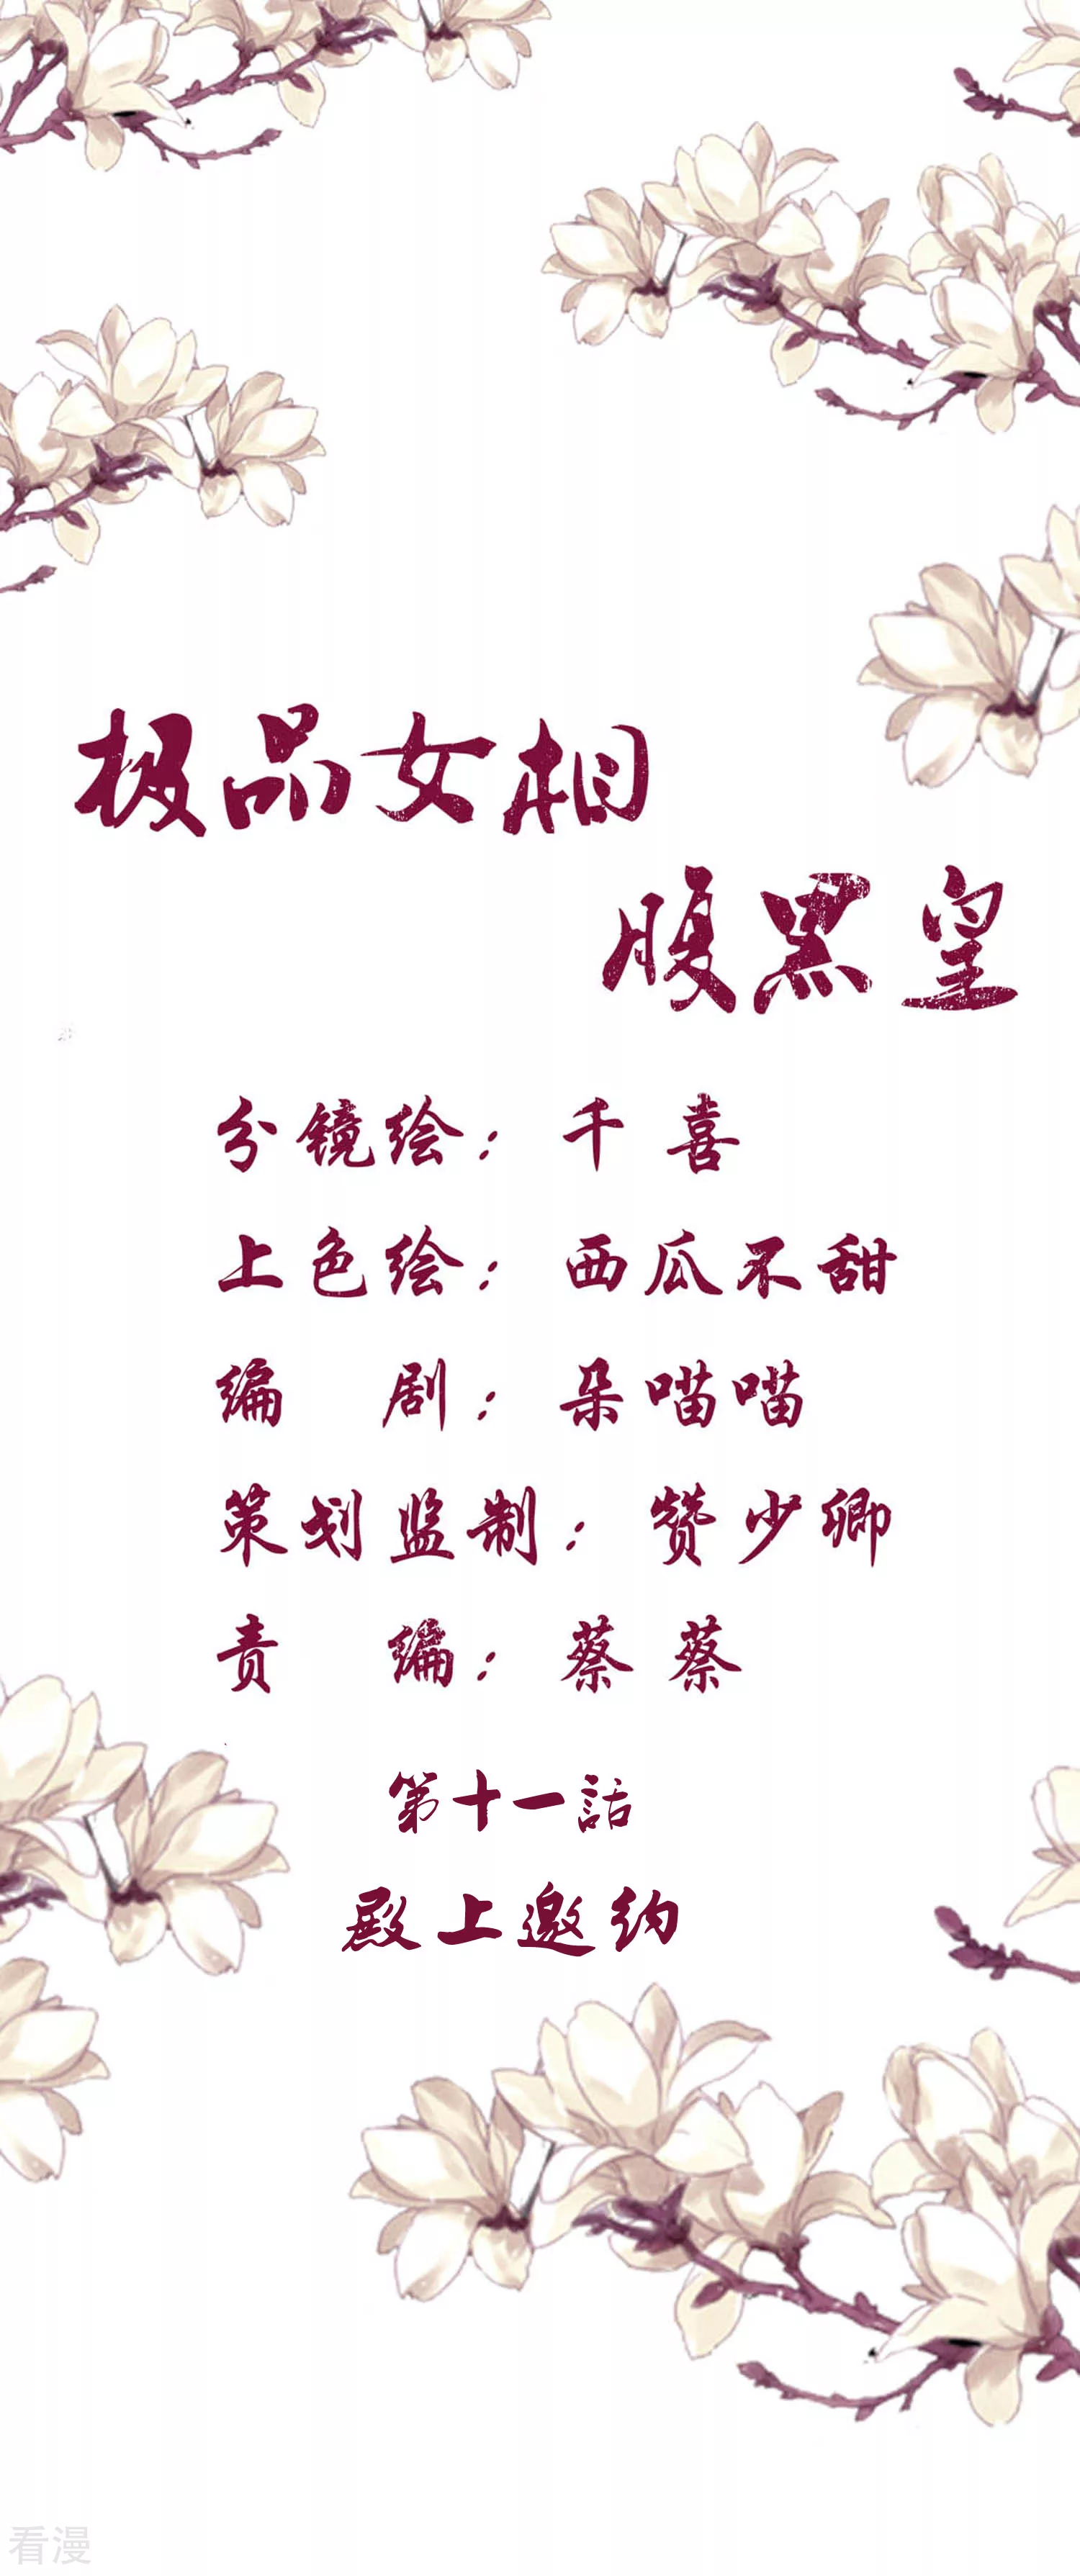 极品女相
腹黑皇
分镜绘：千喜
上色绘：西瓜不甜
编 剧：朵喵喵
策划监制：赞少卿
责 编：蔡蔡
第十一話
殿上邀约
看漫